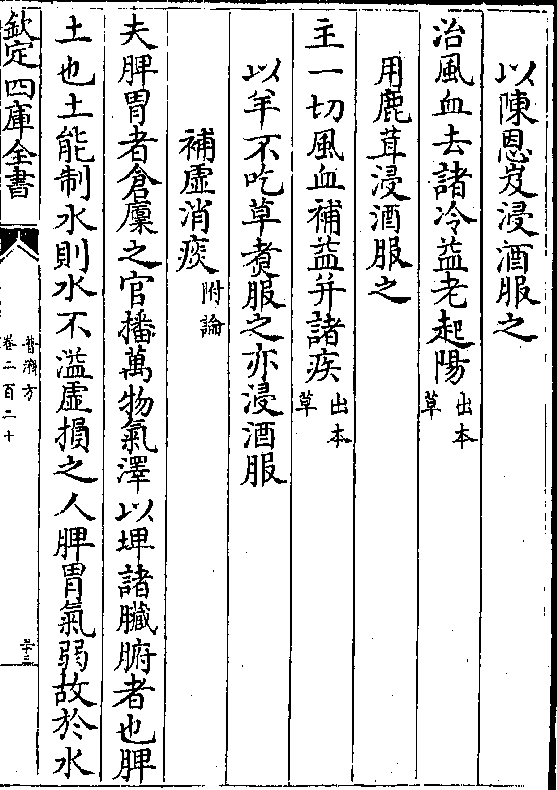 以陳思岌浸酒服之
治風血去諸冷益老起陽出本草
用鹿茸浸酒服之
主一切風血補益并諸疾出本草
以羊不吃草煑服之亦浸酒服
補虛消痰附論
夫脾胃者倉廩之官播萬物氣澤以埤諸臟腑者也脾
土也土能制水則水不溢虛損之人脾胃氣弱故於水
欽定四庫全書
普濟方
卷二百二十